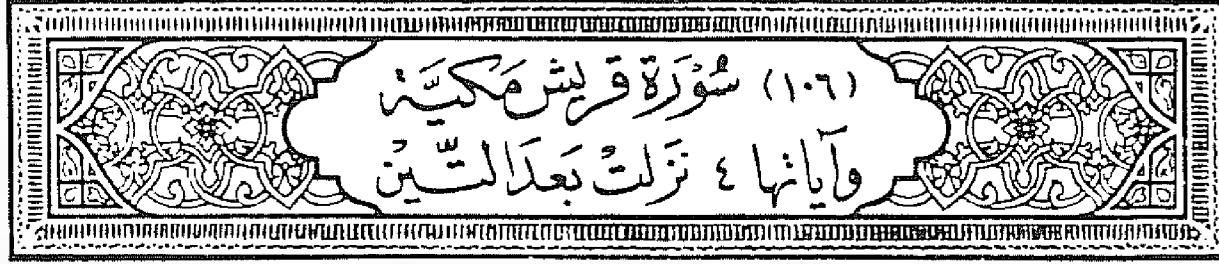 (١٠٦) سُوْرَة قريش مَكيَّة
وآياتها ٤ نَزَلتْ بَعدَ التِّين